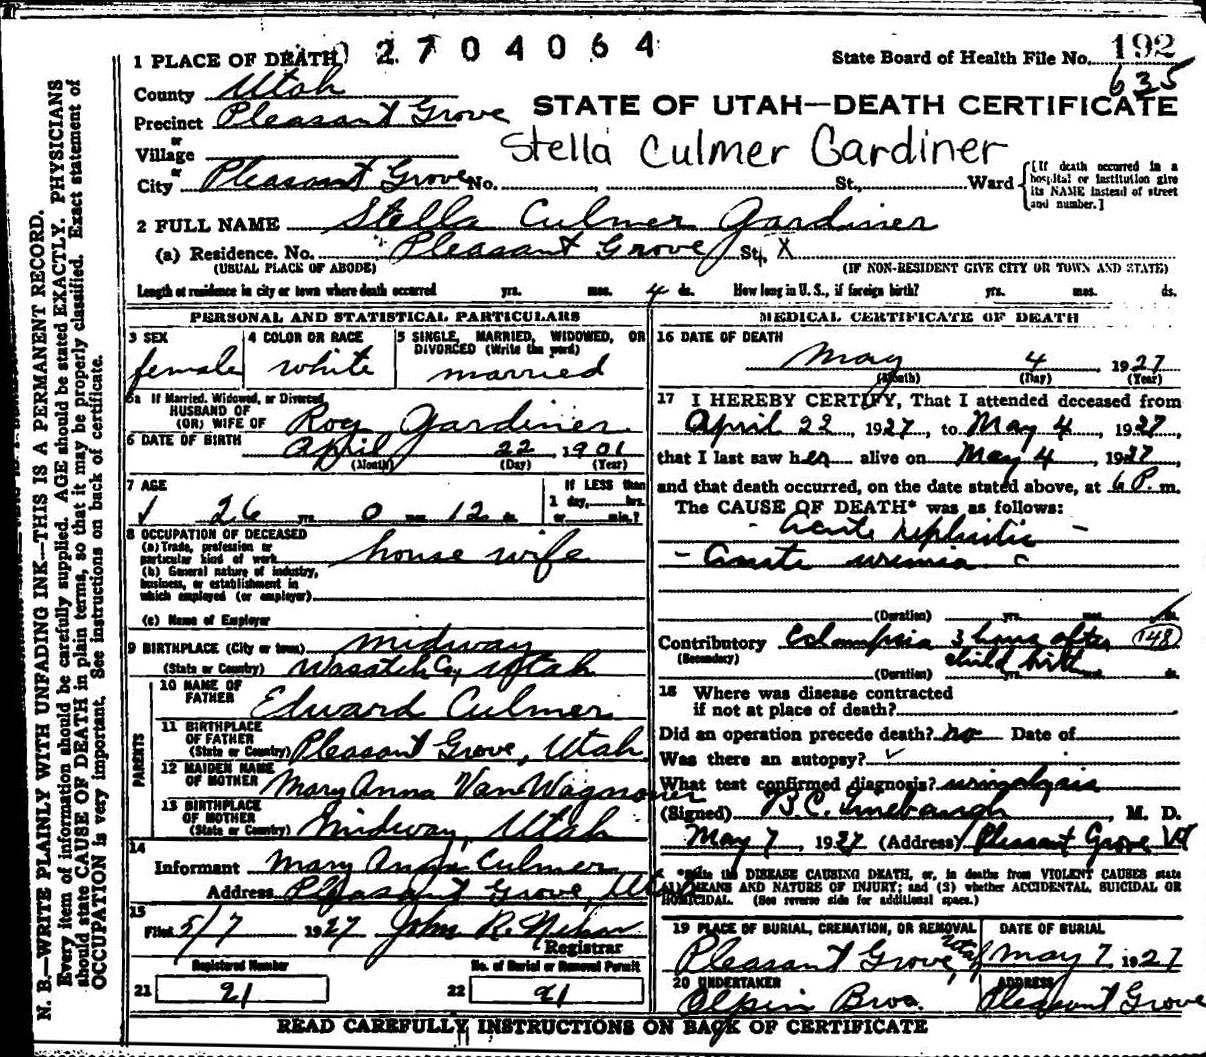 1 PLACE OF DEATH) 2 7 0 4 0 6 4
State Board of Health File No. 192
635
County Utah
STATE OF UTAH—DEATH CERTIFICATE
Precinct Pleasant Grove
or
Village
Stella Culmer Gardiner
or
City Pleasant Grove No. , St., Ward
[If death occurred in a
hospital or institution give
its NAME instead of street
and number.]
2 FULL NAME Stella Culmer Gardiner
(a) Residence. No. Pleasant Grove St., X
(USUAL PLACE OF ABODE) (IF NON-RESIDENT GIVE CITY OR TOWN AND STATE)
Length of residence in city or town where death occurred yrs. mos. 4 ds. How long in U. S., if foreign birth? yrs. mos. ds.
PERSONAL AND STATISTICAL PARTICULARS
3 SEX
female
4 COLOR OR RACE
white
5 SINGLE, MARRIED, WIDOWED, OR
DIVORCED (Write the word)
married
5a If Married, Widowed, or Divorced
HUSBAND OF
(OR) WIFE OF Roy Gardiner
6 DATE OF BIRTH April 22, 1901
(Month) (Day) (Year)
7 AGE
26 yrs. 0 mos. 12 ds.
If LESS than
1 day, hrs.
or min.?
8 OCCUPATION OF DECEASED
(a) Trade, profession or
particular kind of work house wife
(b) General nature of industry,
business, or establishment in
which employed (or employer)
(c) Name of Employer
9 BIRTHPLACE (City or town) Midway
(State or Country) Wasatch Co, Utah
PARENTS
10 NAME OF
FATHER Edward Culmer
11 BIRTHPLACE
OF FATHER
(State or Country) Pleasant Grove, Utah
12 MAIDEN NAME
OF MOTHER Mary Anna Van Wagnoner
13 BIRTHPLACE
OF MOTHER
(State or Country) Midway, Utah
14
Informant Mary Ann Culmer
Address Pleasant Grove, Utah
15
Filed 5/7 1927 John R.
Registrar
Registered Number
21 91
No. of Burial or Removal Permit
22 91
MEDICAL CERTIFICATE OF DEATH
16 DATE OF DEATH
May 4 1927
(Month) (Day) (Year)
17 I HEREBY CERTIFY, That I attended deceased from
April 22, 1927, to May 4, 1927,
that I last saw her alive on May 4, 1927,
and that death occurred, on the date stated above, at 6 P. m.
The CAUSE OF DEATH* was as follows:
- Acute nephritis -
- Acute uremia -
(Duration) yrs. mos. ds.
Contributory Eclampsia 3 hours after 148
(Secondary) child birth
(Duration) yrs. mos. ds.
18 Where was disease contracted
if not at place of death?
Did an operation precede death? no Date of
Was there an autopsy? ✓
What test confirmed diagnosis? urinalysis
(Signed) B. C. Linebaugh, M. D.
May 7, 1927 (Address) Pleasant Grove Ut
*State the DISEASE CAUSING DEATH, or, in deaths from VIOLENT CAUSES state
(1) MEANS AND NATURE OF INJURY; and (2) whether ACCIDENTAL, SUICIDAL OR
HOMICIDAL. (See reverse side for additional space.)
19 PLACE OF BURIAL, CREMATION, OR REMOVAL
Pleasant Grove, Utah
DATE OF BURIAL
May 7 1927
20 UNDERTAKER
Olpin Bros.
ADDRESS
Pleasant Grove
READ CAREFULLY INSTRUCTIONS ON BACK OF CERTIFICATE
N. B.—WRITE PLAINLY WITH UNFADING INK—THIS IS A PERMANENT RECORD.
Every item of information should be carefully supplied. AGE should be stated EXACTLY. PHYSICIANS
should state CAUSE OF DEATH in plain terms, so that it may be properly classified. Exact statement of
OCCUPATION is very important. See instructions on back of certificate.